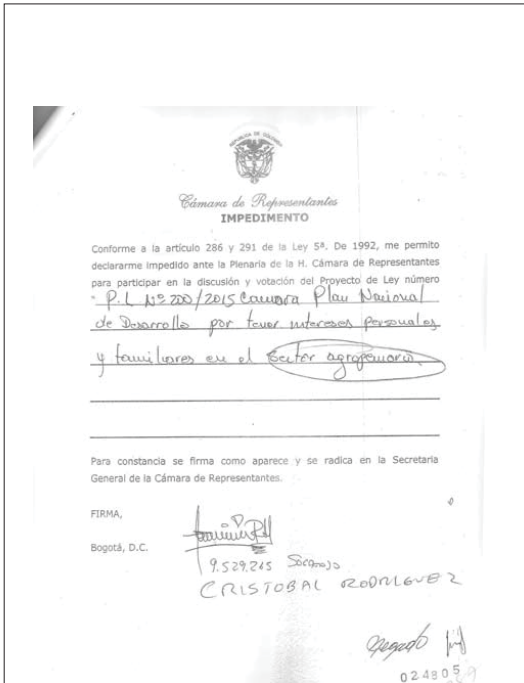 REPUBLICA DE COLOMBIA
Cámara de Representantes
IMPEDIMENTO
Conforme a la artículo 286 y 291 de la Ley 5ª. De 1992, me permito
declararme impedido ante la Plenaria de la H. Cámara de Representantes
para participar en la discusión y votación del Proyecto de Ley número
P.L Nº 200/2015 Camara Plan Nacional
de Desarrollo por tener intereses personales
y familiares en el sector agropecuario.
Para constancia se firma como aparece y se radica en la Secretaria
General de la Cámara de Representantes.
FIRMA,
Bogotá, D.C.
9.529.265 Sogamoso
CRISTOBAL RODRIGUEZ
Negado
024805